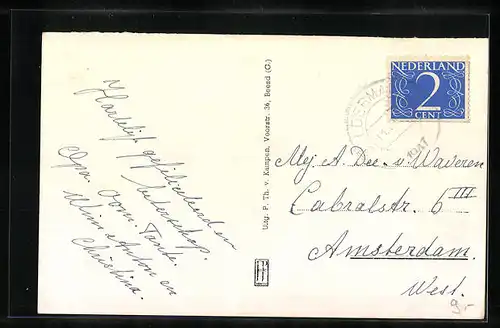 Hartelijk gefeliciteerd en
beterschap.
Opa. Oom. Tante.
Wim Anton en
Christina.
Uitg. P. Th. v. Kampen, Voorstr. 36, Beesd (G.)
NEDERLAND
2
CENT
1947
Mej. A. Dee - v. Waveren
Cabralstr. 6 III
Amsterdam.
West.
9.-